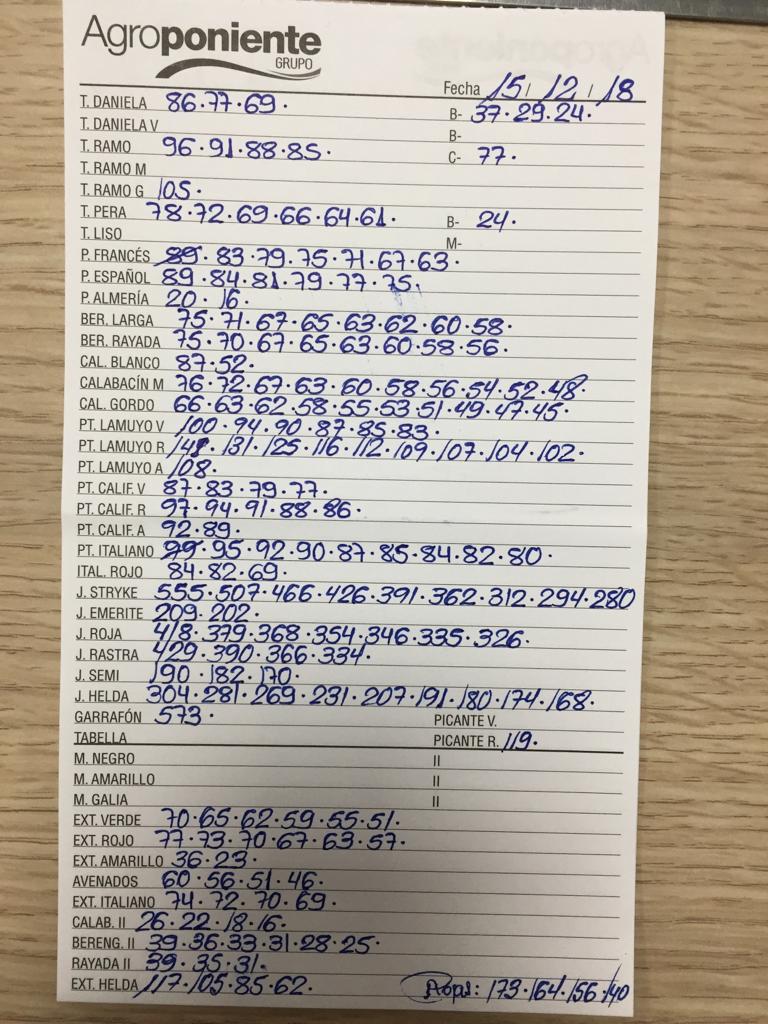 Agroponiente
GRUPO
Fecha 15 / 12 / 18
T. DANELA 86.77.69. B- 37.29.24.
T. DANIELA V B-
T. RAMO 96.91.88.85. C- 77.
T. RAMO M
T. RAMO G 105.
T. PERA 78.72.69.66.64.61. B- 24.
T. LISO M-
P. FRANCÉS 89.83.79.75.71.67.63.
P. ESPAÑOL 89.84.81.79.77.75.
P. ALMERÍA 20.16.
BER. LARGA 75.71.67.65.63.62.60.58.
BER. RAYADA 75.70.67.65.63.60.58.56.
CAL. BLANCO 87.52.
CALABACÍN M 76.72.67.63.60.58.56.54.52.48.
CAL. GORDO 66.63.62.58.55.53.51.49.47.45.
PT. LAMUYO V 100.94.90.87.85.83.
PT. LAMUYO R 141.131.125.116.112.109.107.104.102.
PT. LAMUYO A 108.
PT. CALIF. V 87.83.79.77.
PT. CALIF. R 97.94.91.88.86.
PT. CALIF. A 92.89.
PT. ITALIANO 99.95.92.90.87.85.84.82.80.
ITAL. ROJO 84.82.69.
J. STRYKE 555.507.466.426.391.362.312.294.280
J. EMERITE 209.202.
J. ROJA 418.379.368.354.346.335.326.
J. RASTRA 429.390.366.334.
J. SEMI 190.182.170.
J. HELDA 304.281.269.231.207.191.180.174.168.
GARRAFÓN 573. PICANTE V.
TABELLA PICANTE R. 119.
M. NEGRO II
M. AMARILLO II
M. GALIA II
EXT. VERDE 70.65.62.59.55.51.
EXT. ROJO 77.73.70.67.63.57.
EXT. AMARILLO 36.23.
AVENADOS 60.56.51.46.
EXT. ITALIANO 74.72.70.69.
CALAB. II 26.22.18.16.
BERENG. II 39.36.33.31.28.25.
RAYADA II 39.35.31.
EXT. HELDA 117.105.85.62. 173.164.156.140